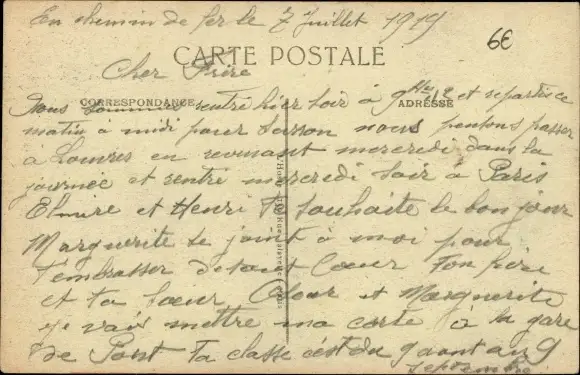 En chemin de fer le 7 Juillet 1919
6€
CARTE POSTALE
Cher Frère
CORRESPONDANCE
ADRESSE
Nous sommes rentré hier soir à 9h 1/2 et repartis ce
matin à midi pour nous pensons passer
à Louvres en revenant mercredi dans la
journée et rentré mercredi soir à Paris
Elmire et Henri Te souhaite le bonjour
Marguerite se joint à moi pour
t'embrasser de tout Coeur Ton frère
et ta soeur et Marguerite
je vais mettre ma carte à la gare
de Pont Ta classe c'est du 9 au
Septembre